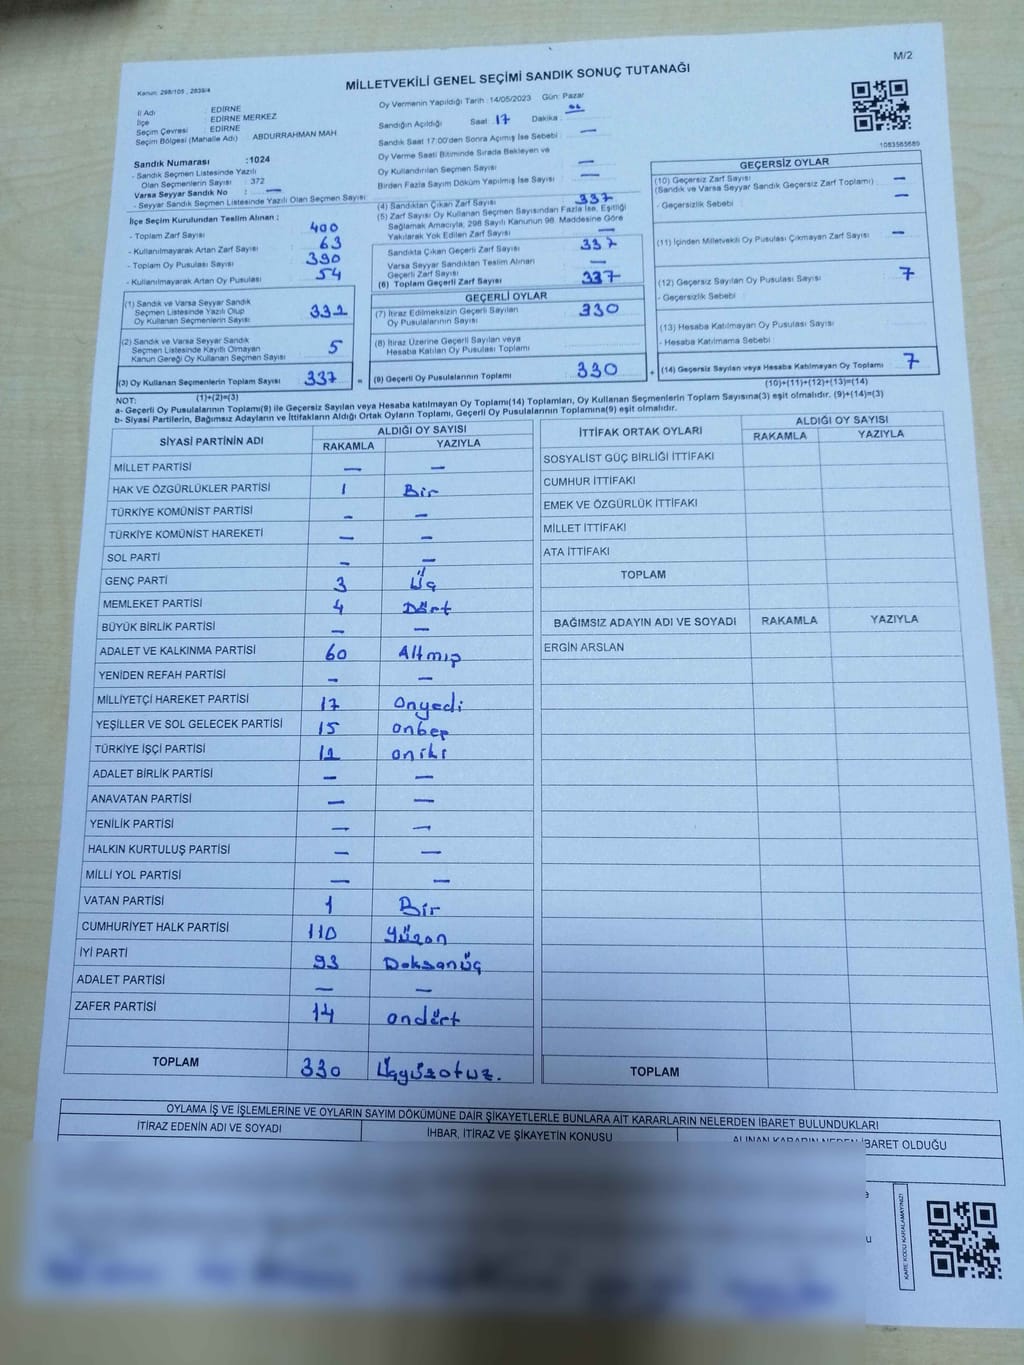 M/2
Kanun: 298/105 , 2839/4
MİLLETVEKİLİ GENEL SEÇİMİ SANDIK SONUÇ TUTANAĞI
İl Adı : EDİRNE
İlçe : EDİRNE MERKEZ
Seçim Çevresi : EDİRNE
Seçim Bölgesi (Mahalle Adı) : ABDURRAHMAN MAH
Sandık Numarası :1024
- Sandık Seçmen Listesinde Yazılı
Olan Seçmenlerin Sayısı : 372
Varsa Seyyar Sandık No : —
- Seyyar Sandık Seçmen Listesinde Yazılı Olan Seçmen Sayısı
İlçe Seçim Kurulundan Teslim Alınan :
- Toplam Zarf Sayısı : 400
- Kullanılmayarak Artan Zarf Sayısı : 63
- Toplam Oy Pusulası Sayısı : 390
- Kullanılmayarak Artan Oy Pusulası : 54
(1) Sandık ve Varsa Seyyar Sandık
Seçmen Listesinde Yazılı Olup
Oy Kullanan Seçmenlerin Sayısı 332
(2) Sandık ve Varsa Seyyar Sandık
Seçmen Listesinde Kayıtlı Olmayan
Kanun Gereği Oy Kullanan Seçmen Sayısı 5
(3) Oy Kullanan Seçmenlerin Toplam Sayısı 337 =
(1)+(2)=(3)
Oy Vermenin Yapıldığı Tarih : 14/05/2023 Gün: Pazar
Sandığın Açıldığı Saat : 17 Dakika :
Sandık Saat 17:00'den Sonra Açımış İse Sebebi : —
Oy Verme Saati Bitiminde Sırada Bekleyen ve
Oy Kullandırılan Seçmen Sayısı : —
Birden Fazla Sayım Döküm Yapılmış İse Sayısı : —
(4) Sandıktan Çıkan Zarf Sayısı : 337
(5) Zarf Sayısı Oy Kullanan Seçmen Sayısından Fazla İse, Eşitliği
Sağlamak Amacıyla, 298 Sayılı Kanunun 98. Maddesine Göre
Yakılarak Yok Edilen Zarf Sayısı : —
Sandıkta Çıkan Geçerli Zarf Sayısı 337
Varsa Seyyar Sandıktan Teslim Alınan
Geçerli Zarf Sayısı —
(6) Toplam Geçerli Zarf Sayısı 337
GEÇERLİ OYLAR
(7) İtiraz Edilmeksizin Geçerli Sayılan
Oy Pusulalarının Sayısı 330
(8) İtiraz Üzerine Geçerli Sayılan veya
Hesaba Katılan Oy Pusulası Toplamı
(9) Geçerli Oy Pusulalarının Toplamı 330 +
1083585689
GEÇERSİZ OYLAR
(10) Geçersiz Zarf Sayısı : —
(Sandık ve Varsa Seyyar Sandık Geçersiz Zarf Toplamı)
- Geçersizlik Sebebi : —
(11) İçinden Milletvekili Oy Pusulası Çıkmayan Zarf Sayısı : —
(12) Geçersiz Sayılan Oy Pusulası Sayısı : 7
- Geçersizlik Sebebi :
(13) Hesaba Katılmayan Oy Pusulası Sayısı :
- Hesaba Katılmama Sebebi :
(14) Geçersiz Sayılan veya Hesaba Katılmayan Oy Toplamı 7
(10)+(11)+(12)+(13)=(14)
NOT:
a- Geçerli Oy Pusulalarının Toplamı(9) ile Geçersiz Sayılan veya Hesaba Katılmayan Oy Toplamı(14) Toplamları, Oy Kullanan Seçmenlerin Toplam Sayısına(3) eşit olmalıdır. (9)+(14)=(3)
b- Siyasi Partilerin, Bağımsız Adayların ve İttifakların Aldığı Ortak Oyların Toplamı, Geçerli Oy Pusulalarının Toplamına(9) eşit olmalıdır.
SİYASİ PARTİNİN ADI ALDIĞI OY SAYISI
RAKAMLA YAZIYLA
MİLLET PARTİSİ — —
HAK VE ÖZGÜRLÜKLER PARTİSİ 1 Bir
TÜRKİYE KOMÜNİST PARTİSİ — —
TÜRKİYE KOMÜNİST HAREKETİ — —
SOL PARTİ — —
GENÇ PARTİ 3 Üç
MEMLEKET PARTİSİ 4 Dört
BÜYÜK BİRLİK PARTİSİ — —
ADALET VE KALKINMA PARTİSİ 60 Altmış
YENİDEN REFAH PARTİSİ — —
MİLLİYETÇİ HAREKET PARTİSİ 17 onyedi
YEŞİLLER VE SOL GELECEK PARTİSİ 15 onbeş
TÜRKİYE İŞÇİ PARTİSİ 12 oniki
ADALET BİRLİK PARTİSİ — —
ANAVATAN PARTİSİ — —
YENİLİK PARTİSİ — —
HALKIN KURTULUŞ PARTİSİ — —
MİLLİ YOL PARTİSİ — —
VATAN PARTİSİ 1 Bir
CUMHURİYET HALK PARTİSİ 110 yüzon
İYİ PARTİ 93 Doksanüç
ADALET PARTİSİ — —
ZAFER PARTİSİ 14 ondört
TOPLAM 330 Üçyüzotuz.
İTTİFAK ORTAK OYLARI ALDIĞI OY SAYISI
RAKAMLA YAZIYLA
SOSYALİST GÜÇ BİRLİĞİ İTTİFAKI
CUMHUR İTTİFAKI
EMEK VE ÖZGÜRLÜK İTTİFAKI
MİLLET İTTİFAKI
ATA İTTİFAKI
TOPLAM
BAĞIMSIZ ADAYIN ADI VE SOYADI RAKAMLA YAZIYLA
ERGİN ARSLAN
TOPLAM
OYLAMA İŞ VE İŞLEMLERİNE VE OYLARIN SAYIM DÖKÜMÜNE DAİR ŞİKAYETLERLE BUNLARA AİT KARARLARIN NELERDEN İBARET BULUNDUKLARI
İTİRAZ EDENİN ADI VE SOYADI İHBAR, İTİRAZ VE ŞİKAYETİN KONUSU ALINAN KARARIN NEDEN İBARET OLDUĞU
KARE KODU KARALAMAYINIZ!